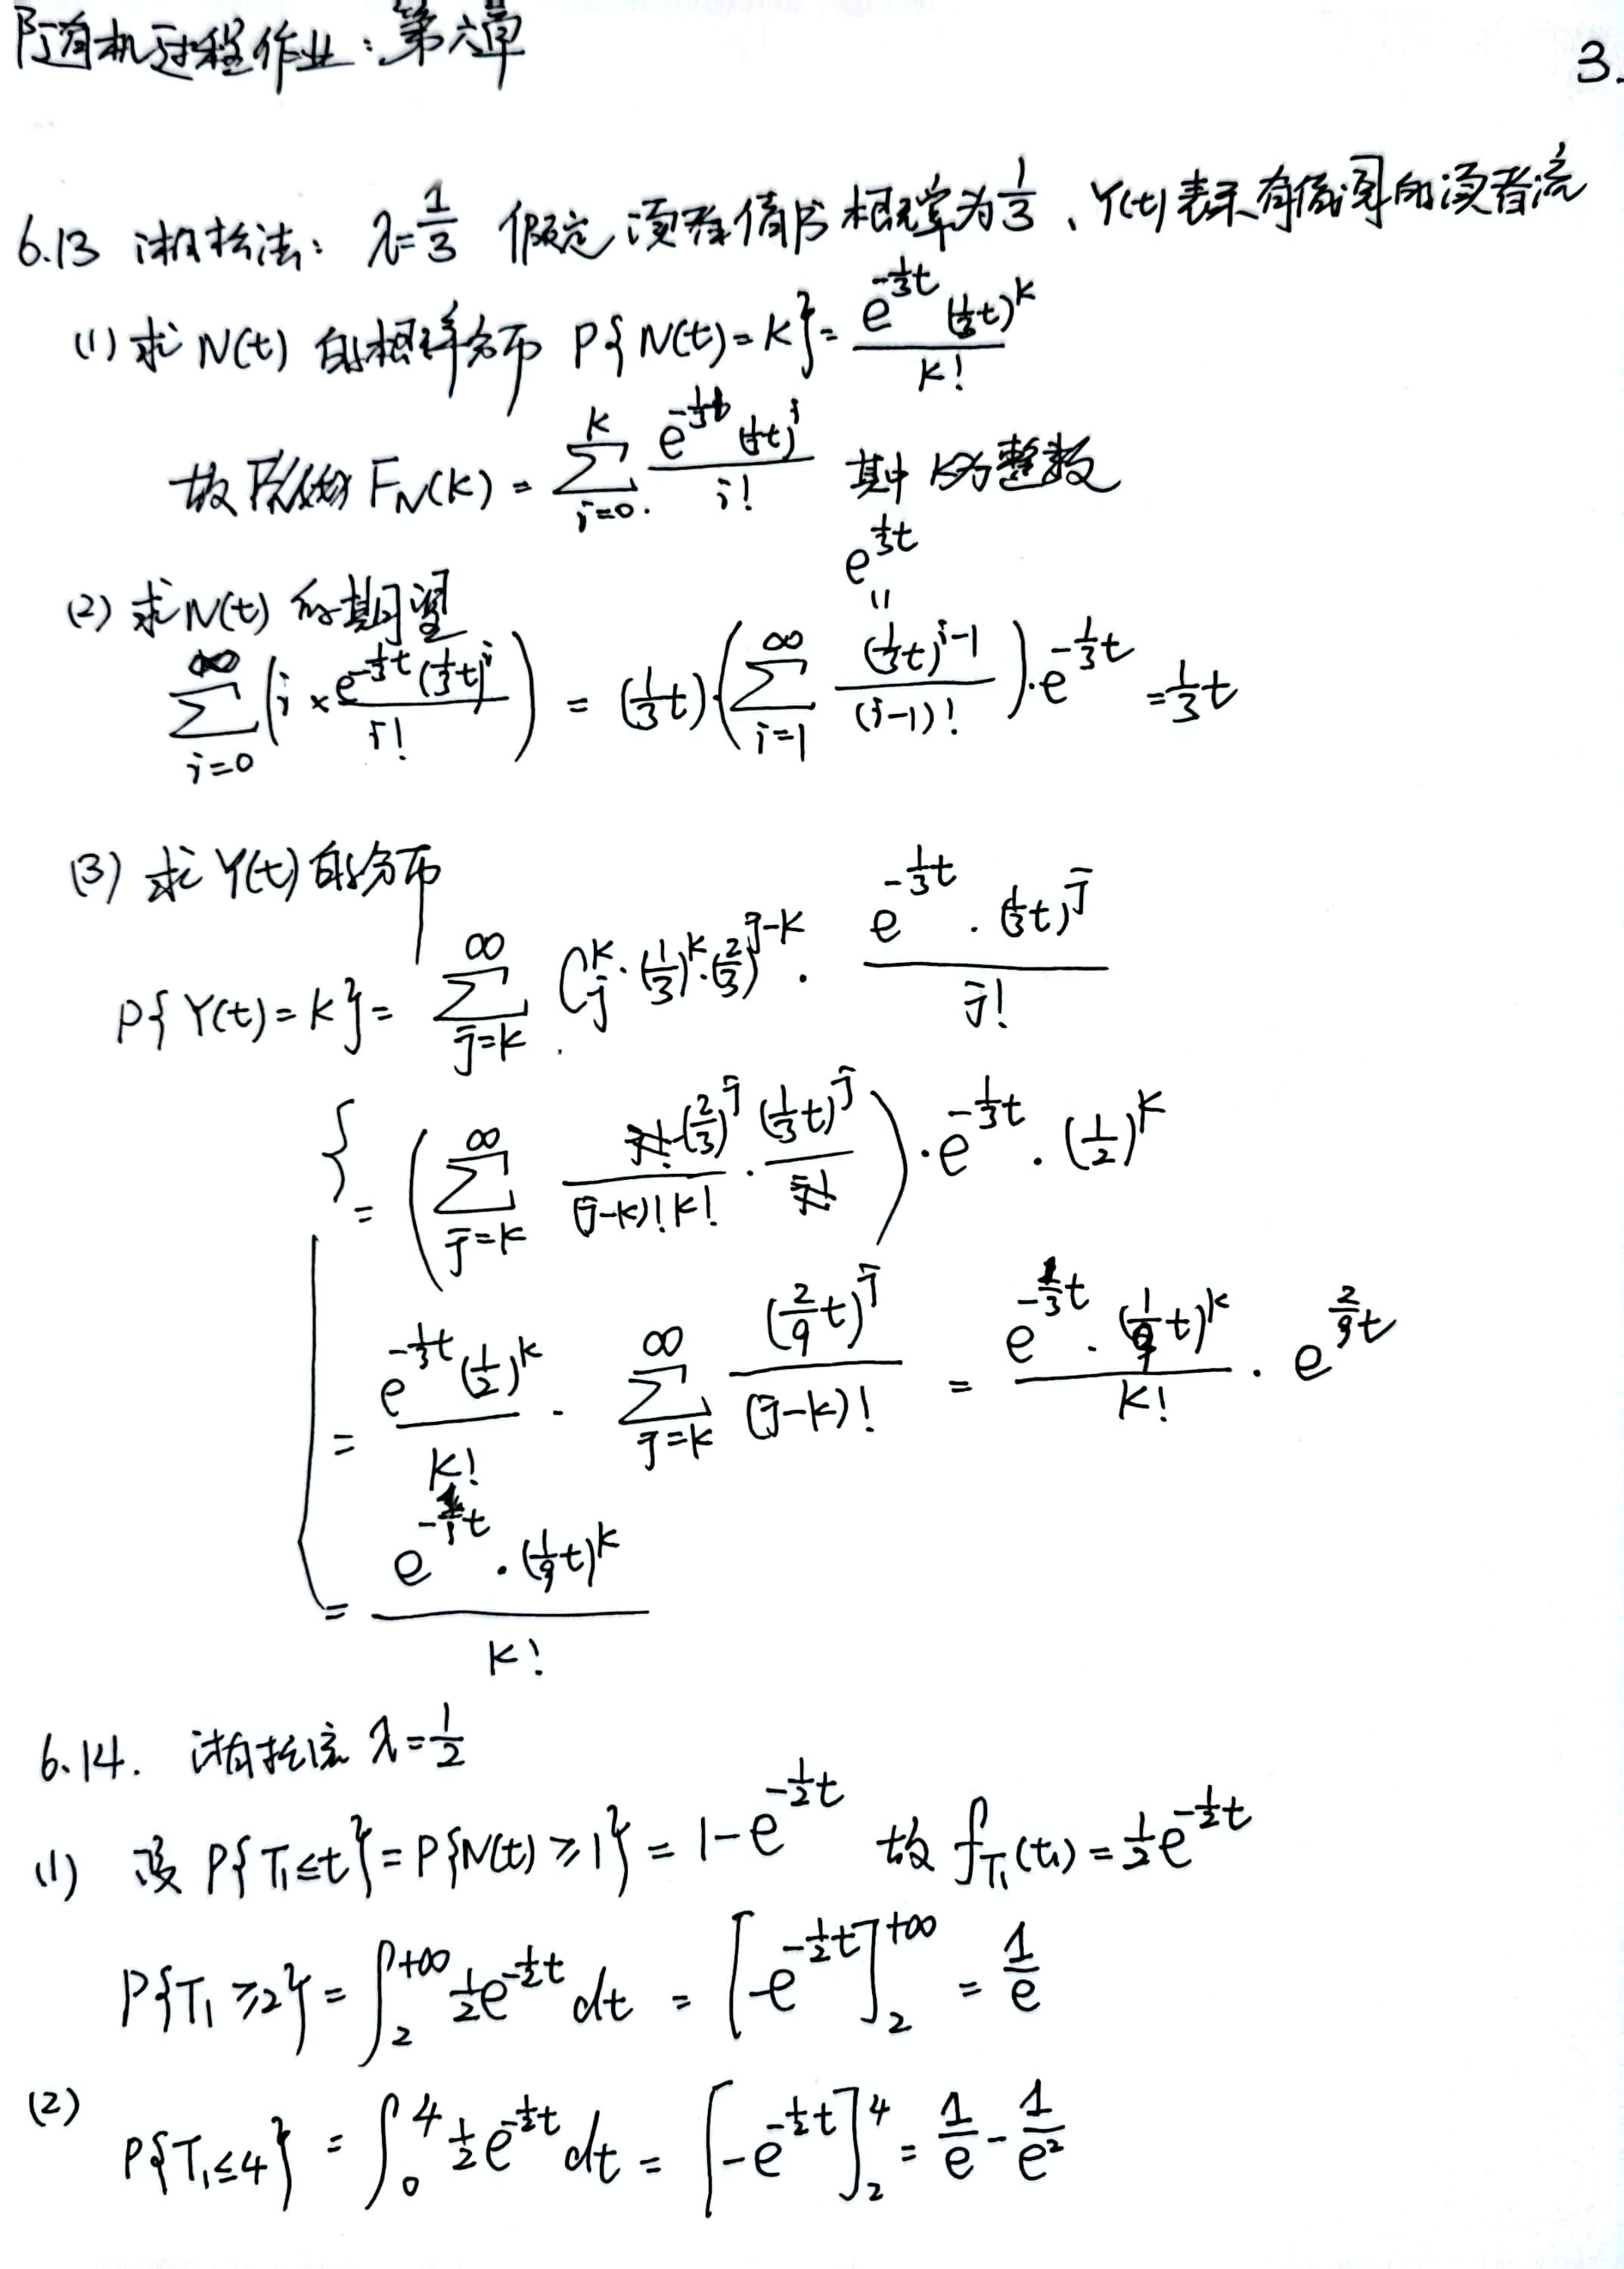 随机过程作业：第六章
3.
6.13 泊松流：λ=1/3 假定读者借书概率为1/3、Y(t)表示有借阅的读者流
(1) 求N(t)的概率分布 P{N(t)=k}= e^{-1/3t}(1/3t)^k / k!
故 F_N(k) = Σ_{i=0}^{k} e^{-1/3t}(1/3t)^i / i! 其中k为整数
e^{1/3t}
=
(2) 求N(t)的期望
Σ_{i=0}^{∞} (i × e^{-1/3t}(1/3t)^i / i!) = (1/3t)·(Σ_{i=1}^{∞} (1/3t)^{i-1} / (i-1)!)·e^{-1/3t} = 1/3t
(3) 求Y(t)的分布
P{Y(t)=k}= Σ_{j=k}^{∞} C_j^k·(1/3)^k·(2/3)^{j-k}· e^{-1/3t}·(1/3t)^j / j!
= (Σ_{j=k}^{∞} j!·(2/3)^j / (j-k)!k! · (1/3t)^j / j!)·e^{-1/3t}·(1/2)^k
= e^{-1/3t}(1/2)^k / k! · Σ_{j=k}^{∞} (2/9t)^j / (j-k)! = e^{-1/3t}·(1/9t)^k / k! · e^{2/9t}
= e^{-1/9t}·(1/9t)^k / k!
6.14. 泊松流 λ=1/2
(1) 设 P{T₁≤t}=P{N(t)≥1}= 1-e^{-1/2t} 故 f_{T₁}(t₁)=1/2e^{-1/2t}
P{T₁≥2}= ∫_2^{+∞} 1/2e^{-1/2t}dt = [-e^{-1/2t}]_2^{+∞} = 1/e
(2) P{T₁≤4} = ∫_0^4 1/2e^{-1/2t}dt = [-e^{-1/2t}]_2^4 = 1/e - 1/e²